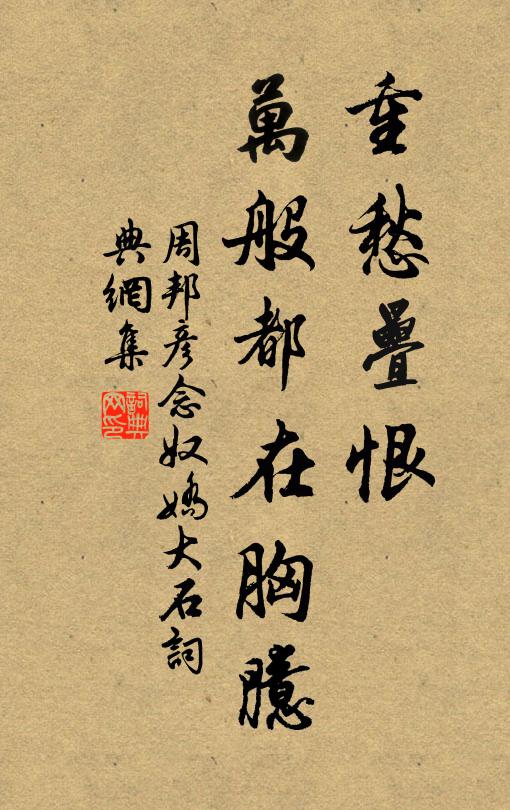 重愁疊恨
萬般都在胸臆
周邦彥念奴嬌大石詞
典網集
詞典網印